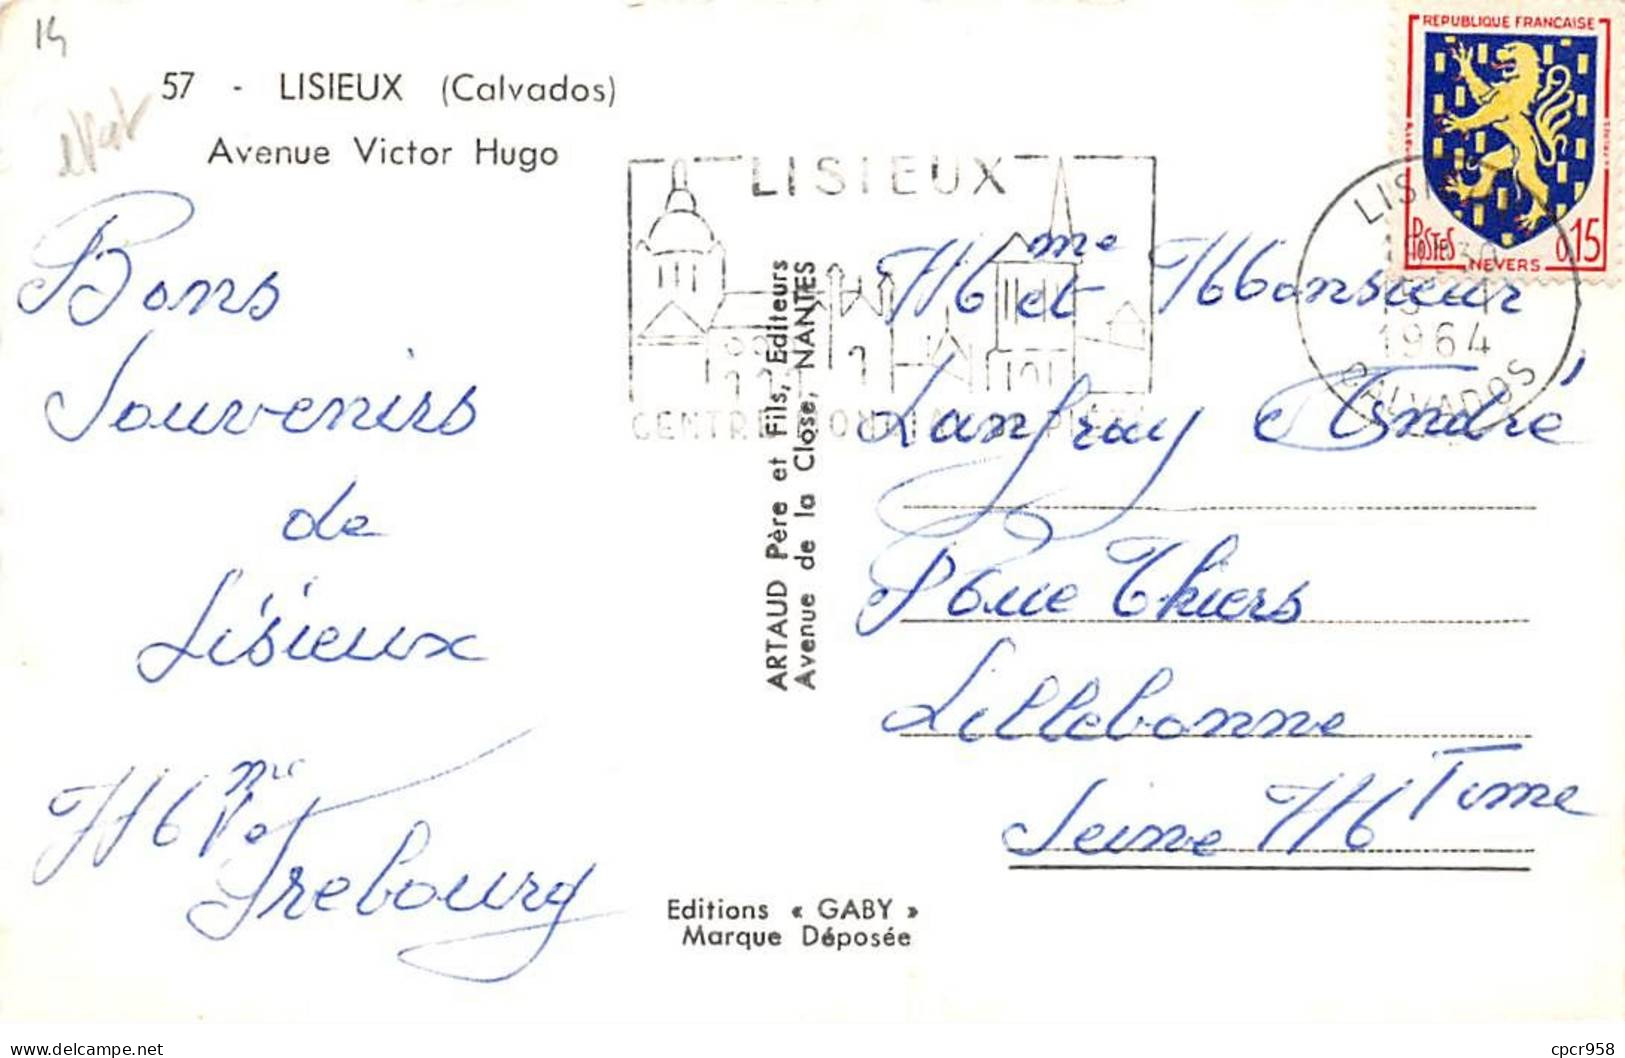 14
57 - LISIEUX (Calvados)
Avenue Victor Hugo
Bons
Souvenirs
de
Lisieux
Mme et
Frebourg
LISIEUX
ARTAUD Père et Fils, Éditeurs
Avenue de la Close, NANTES
REPUBLIQUE FRANCAISE
POSTES
NEVERS
0,15
1964
CALVADOS
Mme et Monsieur
Lanfray André
Rue Thiers
Lillebonne
Seine Mtime
Editions « GABY »
Marque Déposée
delcampe.net
cpcr958